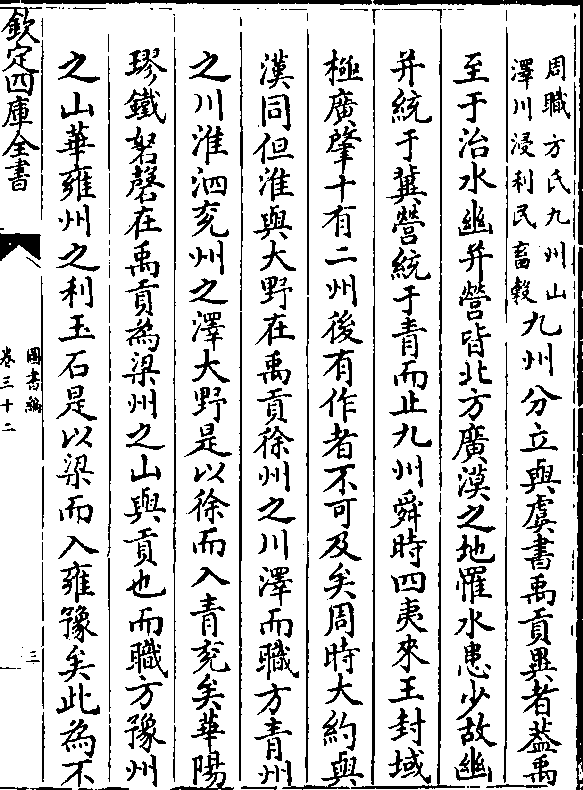 周職方氏九州山
澤川浸利民畜穀
九州分立與虞書禹貢異者葢禹
至于治水幽并營皆北方廣漠之地罹水患少故幽
并統于冀營統于青而止九州舜時四夷來王封域
極廣肇十有二州後有作者不可及矣周時大約與
漢同但淮與大野在禹貢徐州之川澤而職方青州
之川淮泗兖州之澤大野是以徐而入青兖矣華陽
璆鐵砮磬在禹貢為梁州之山與貢也而職方豫州
之山華雍州之利玉石是以梁而入雍豫矣此為不
欽定四庫全書
圖書編
卷三十二
三